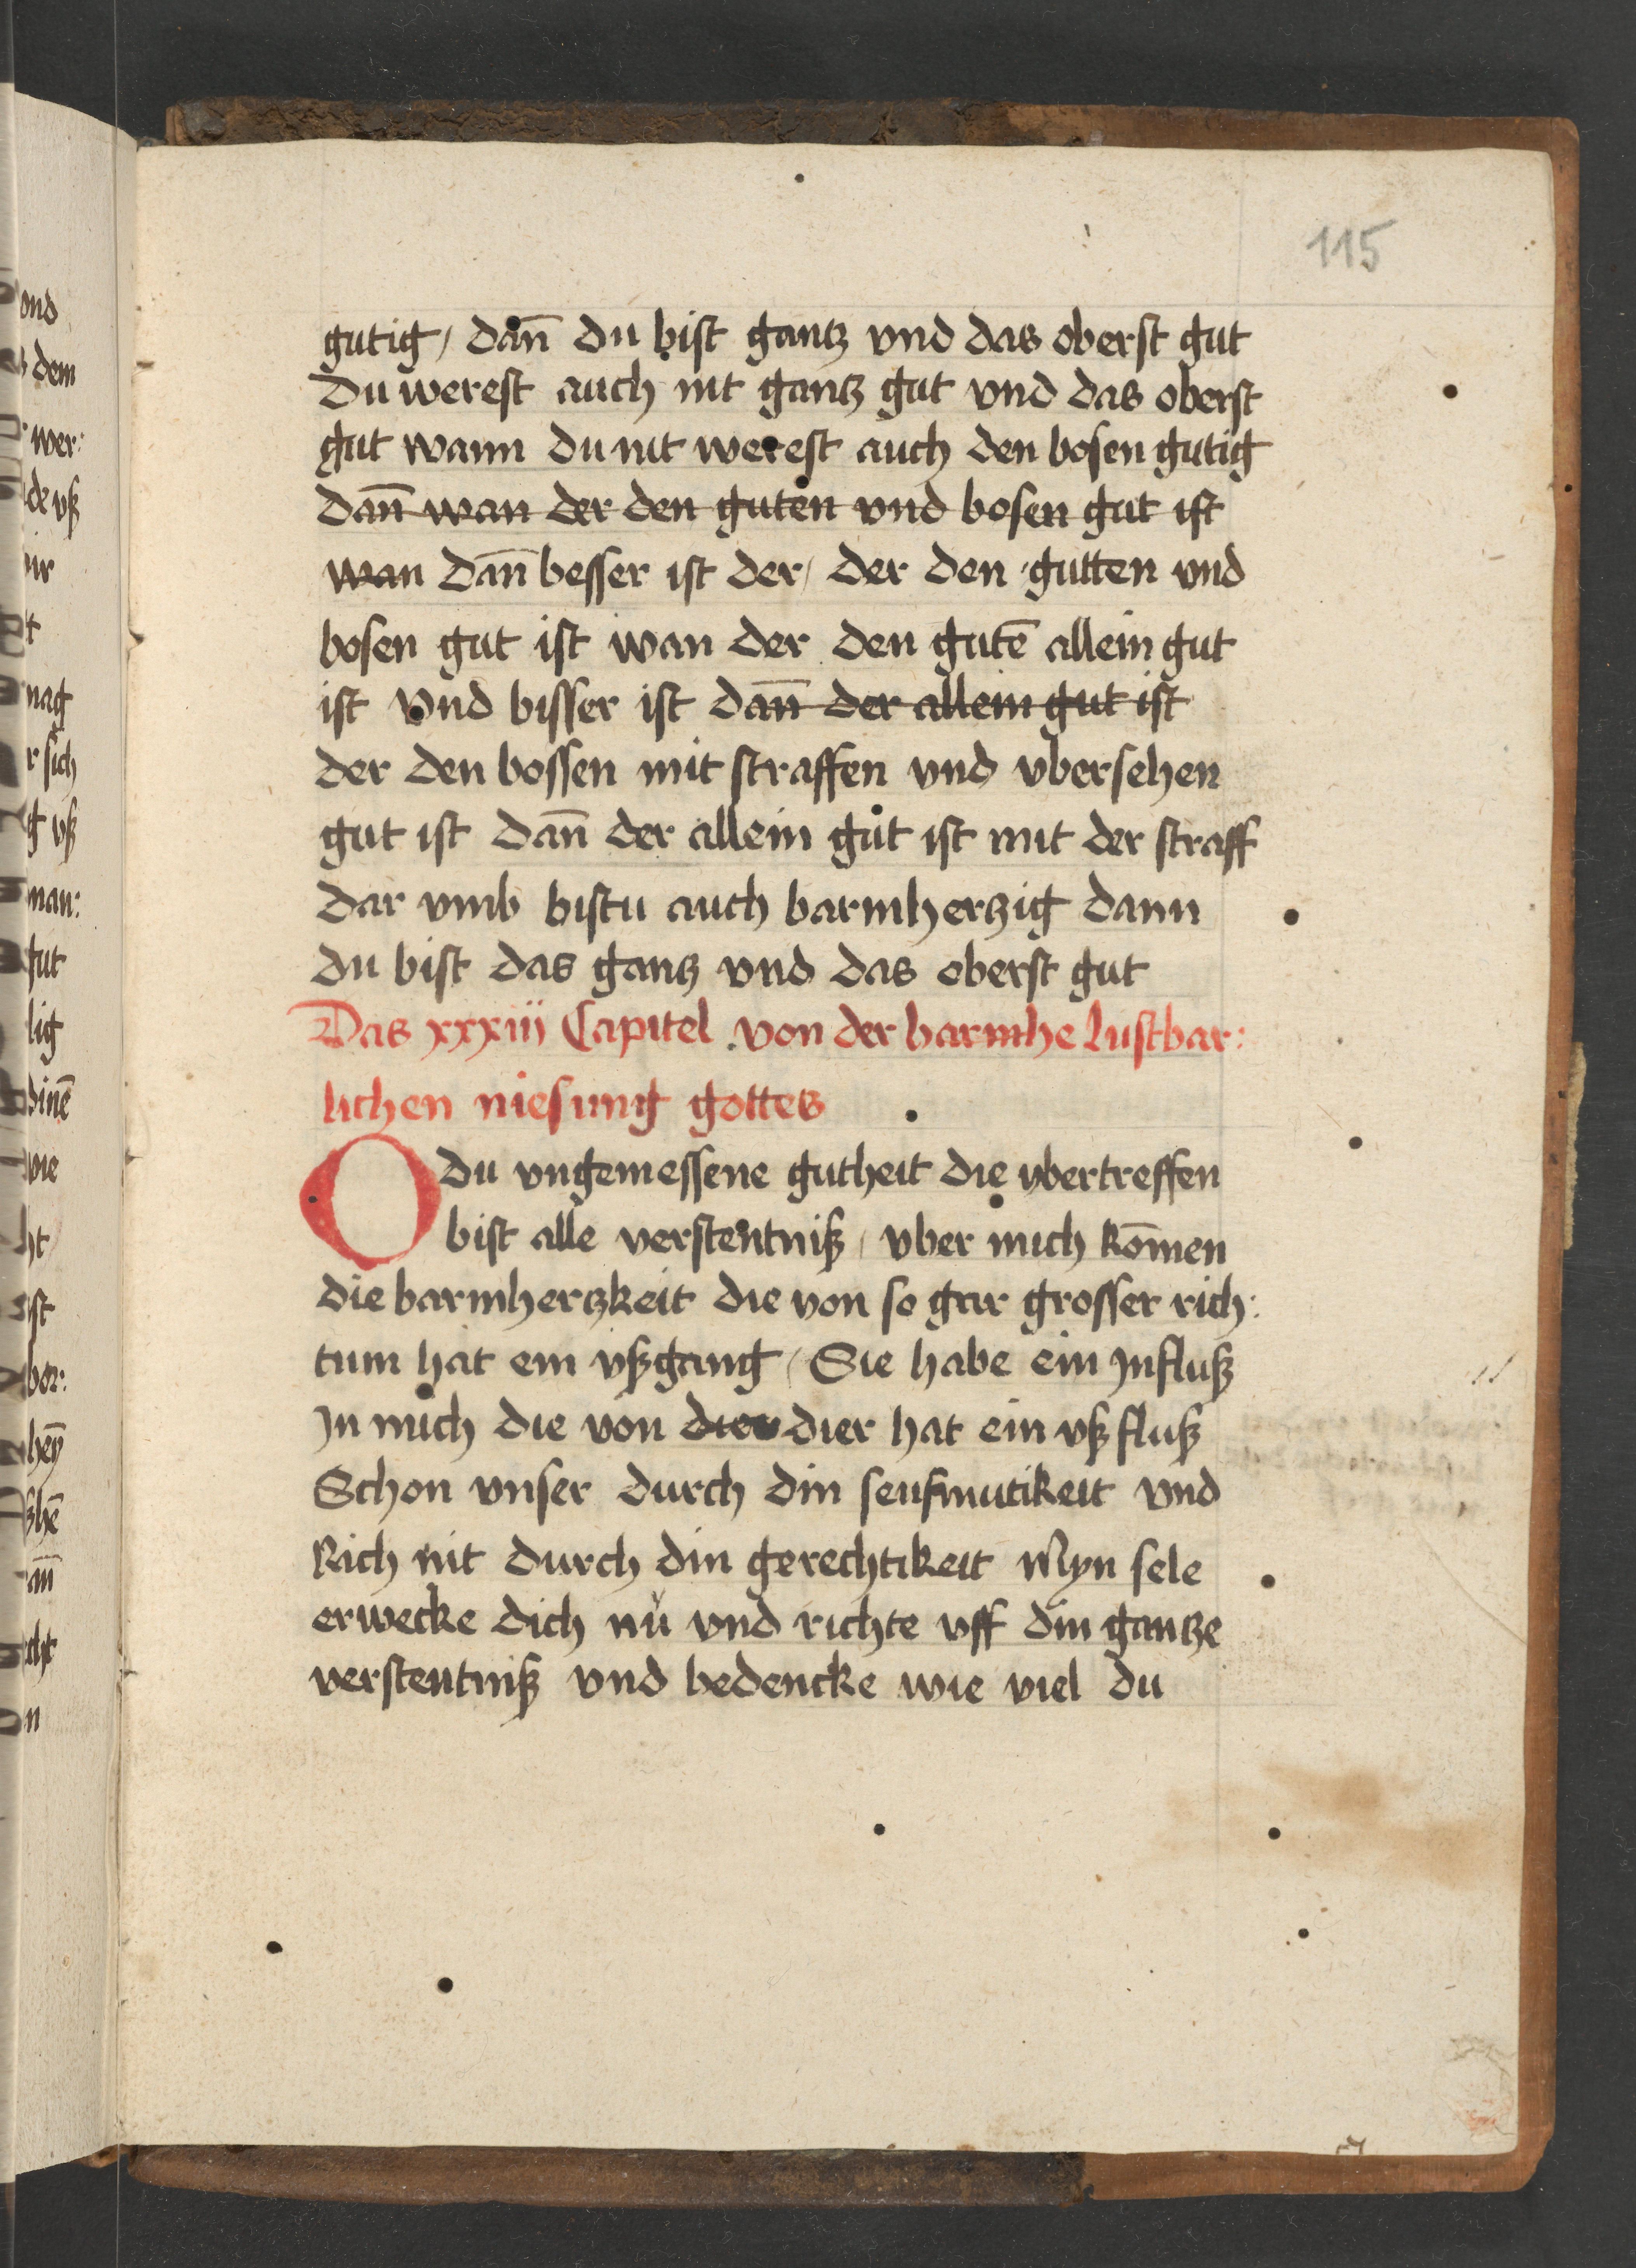 115
gutig / dan̄ du bist gantz vnd das oberst gut
Du werest auch nit gantz gut vnd das oberst
gut wann du nit werest auch den bosen gutig
dan̄ wan der den guten vnd bosen gut ist
wan dan̄ besser ist der / der den gutten vnd
bosen gut ist wan der den gutē allein gut
ist vnd bisser ist dan̄ der allein gut ist
der den bossen mit straffen vnd vbersehen
gut ist dan̄ der allein gut ist mit der straff
dar vmb bistu auch barmhertzig dann
du bist das gantz vnd das oberst gut
Das xxxiii Capitel von der barmhe lustbar:
lichen niesung gottes
O du vngemessene gutheit die vbertreffen
bist alle verstentniß / vber mich kom̄en
die barmhertzkeit die von so gar grosser rich:
tum hat ein vßgang / Sie habe ein Influß
In mich die von dier dier hat ein vßfluß
Schon vnser durch din senfmutikeit vnd
Rich nit durch din gerechtikeit Myn sele
erwecke dich nů vnd richte vff din gantze
verstentniß vnd bedencke wie viel du